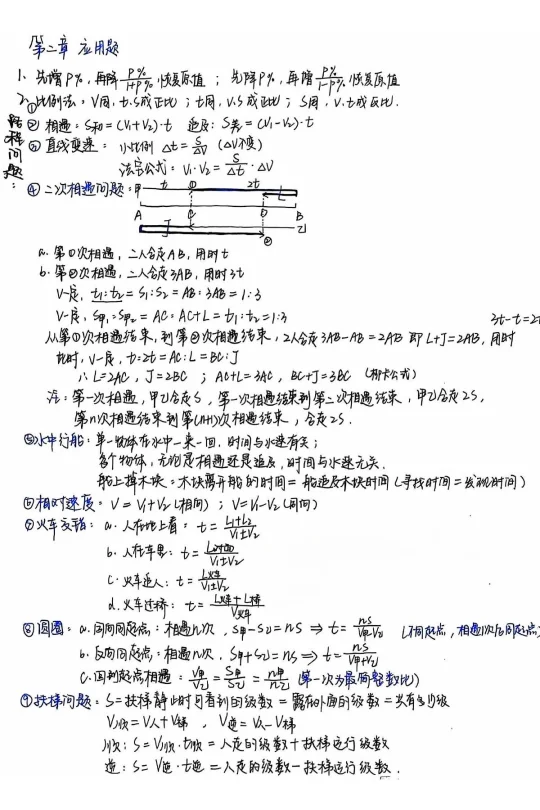 第二章 应用题
1. 先增P%,再降P%/(1+P%),恢复原值;先降P%,再增P%/(1-P%),恢复原值
2. 路程问题:
①比例法:V同,t.S成正比;t同,V.S成正比;S同,V.t成反比.
②相遇:S和=(V1+V2)·t 追及:S差=(V1-V2)·t
③直线变速: 小比例 Δt=S/ΔV (ΔV不变)
法宝公式:V1·V2=S/Δt·ΔV
④二次相遇问题:甲 t ① 2t L
A C D B
J ② 乙
a. 第①次相遇,二人合走AB,用时t
b. 第②次相遇,二人合走3AB,用时3t
V一定,t1:t2=S1:S2=AB:3AB=1:3
V一定,S甲1:S甲2=AC:AC+L=t1:t2=1:3 3t-t=2t
从第①次相遇结束,到第②次相遇结束,2人合走3AB-AB=2AB 即L+J=2AB,用时
此时,V一定,t:2t=AC:L=BC:J
∴L=2AC,J=2BC ; AC+L=3AC,BC+J=3BC
注:第一次相遇,甲乙合走S,第一次相遇结束到第二次相遇结束,甲乙合走2S,
第n次相遇结束到第(n+1)次相遇结束,合走2S.
⑤水中行船:单一物体在水中一来一回,时间与水速有关;
多个物体,无论是相遇还是追及,时间与水速无关.
船上掉木块:木块离开船的时间=船追及木块时间(寻找时间=发现时间)
⑥相对速度:V=V1+V2(相向);V=V1-V2(同向)
⑦火车交错:a. 人在地上看:t=(L1+L2)/(V1±V2)
b. 人在车里:t=L对面/(V1±V2)
c. 火车追人:t=L火车/(V1±V2)
d. 火车过桥:t=(L火车+L桥)/V火车
⑧圆圈:a. 同向同起点:相遇n次,S甲-S乙=nS ⇒ t=nS/(V甲-V乙) (不同起点,相遇1次后同起点)
b. 反向同起点:相遇n次,S甲+S乙=nS ⇒ t=nS/(V甲+V乙)
c. 回到起点相遇:V甲/V乙=S甲/S乙=n甲/n乙 (第一次为最简整数比)
⑨扶梯问题:S=扶梯静止时可看到的级数=露在外面的级数=共有多少级
V顺=V人+V梯,V逆=V人-V梯
顺:S=V顺·t顺=人走的级数+扶梯运行级数
逆:S=V逆·t逆=人走的级数-扶梯运行级数.